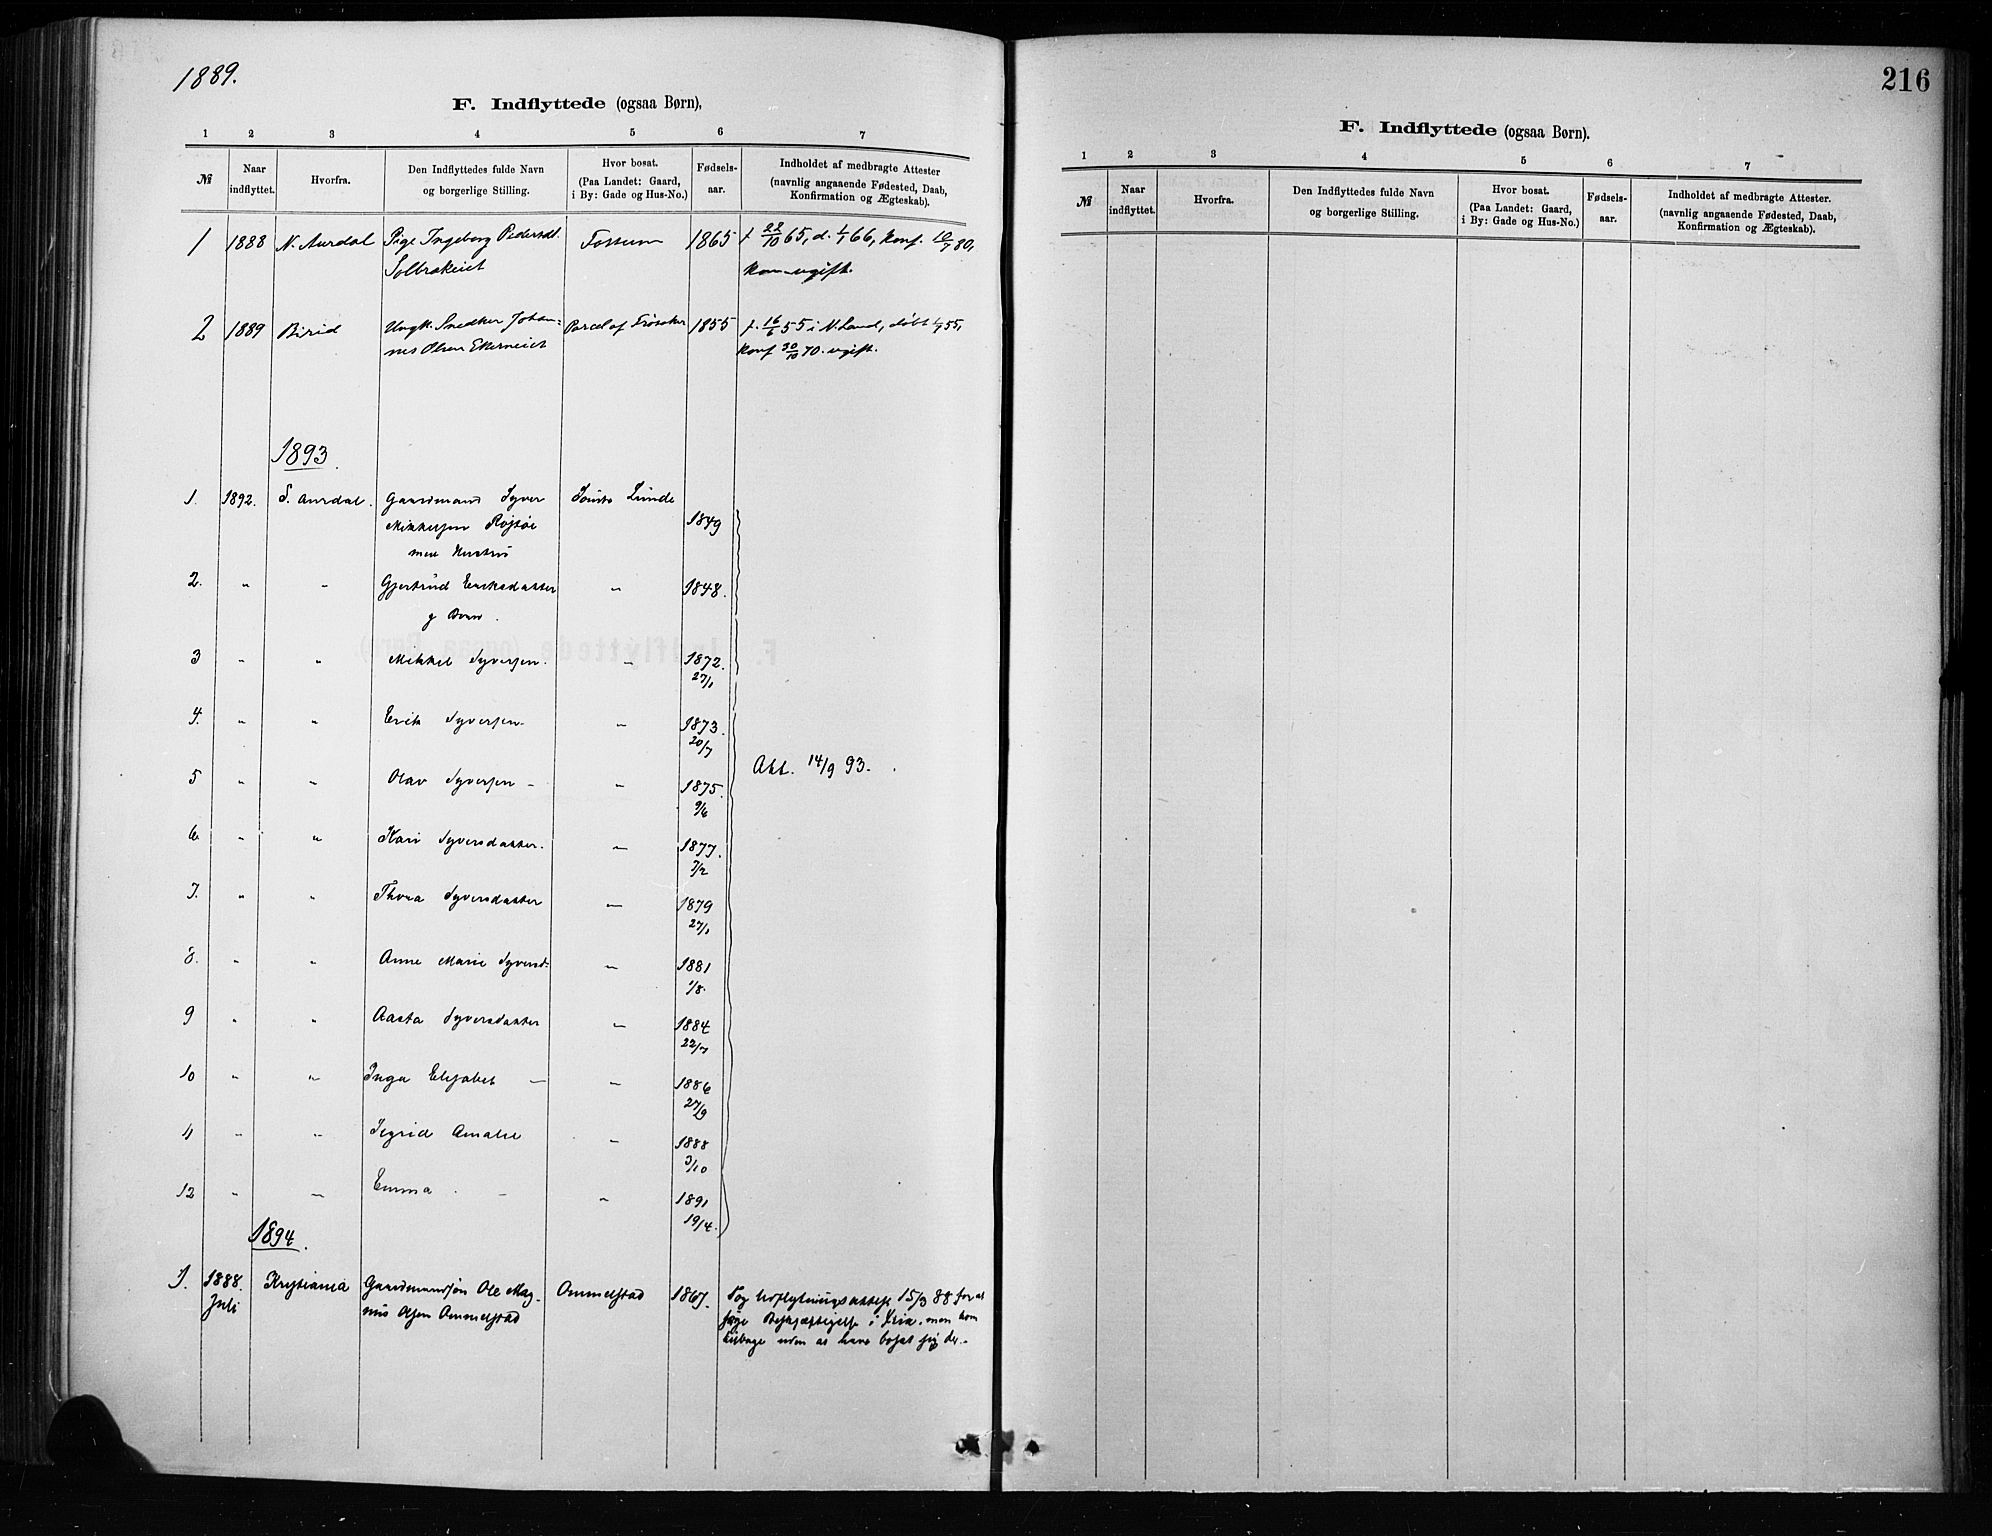 1889.
F. Indflyttede (ogsaa Børn),
1 2 3 4 5 6 7
№ Naar indflyttet. Hvorfra. Den Indflyttedes fulde Navn og borgerlige Stilling. Hvor bosat. (Paa Landet: Gaard, i By: Gade og Hus-No.) Fødsels-aar. Indholdet af medbragte Attester (navnlig angaaende Fødested, Daab, Konfirmation og Ægteskab).
1 1888 N. Aurdal Pige Ingeborg Pedersd. Fossum 1865 f. 22/10 65, d. 1/1 66, konf. 10/7 80,
Solbrækeiet kom ugift.
2 1889 Birid Ungk. Snedker Johan- Parcel af Frøsaker 1855 f. 16/6 55 i N. Land, døbt 1/7 55,
nes Olsen Ekerneiet konf 30/10 70. ugift.
1893.
1. 1892. S. Aurdal. Gaardmand Syver Lunde
Mikkelsen 1849
med Hustru
2. " " Gjertrud Eriksdatter " 1848.
g Børn.
3 " " Mikkel Syversen. " 1872.
27/1
4. " " Erik Syversen. " 1873.
20/7
Att. 14/9 93.
5 " " Olav Syversen " 1875.
9/6
6 " " Kari Syversdatter. " 1877.
7/2
7. " " Thora Syversdatter " 1879
27/1
8. " " Anne Marie Syversd. " 1881
1/8.
9 " " Aasta Syversdatter " 1884
22/7
10 " " Inga Elisabet — " 1886
27/9
11 " " Sigrid Amalie " 1888
3/10
12 " " Emma — " 1891
19/4.
1894.
1. 1888. Kristiania Gaardmandsøn Ole Mag- Ommelstad 1867. Tog Udflytningsattest 15/3 88 for at
Juli nus Olsen Ommelstad søge Beskjæftigelse i Kria. men kom
tilbage uden at have bosat sig der.
216
F. Indflyttede (ogsaa Børn).
1 2 3 4 5 6 7
№ Naar indflyttet. Hvorfra. Den Indflyttedes fulde Navn og borgerlige Stilling. Hvor bosat. (Paa Landet: Gaard, i By: Gade og Hus-No.) Fødsels-aar. Indholdet af medbragte Attester. (navnlig angaaende Fødested, Daab, Konfirmation og Ægteskab).